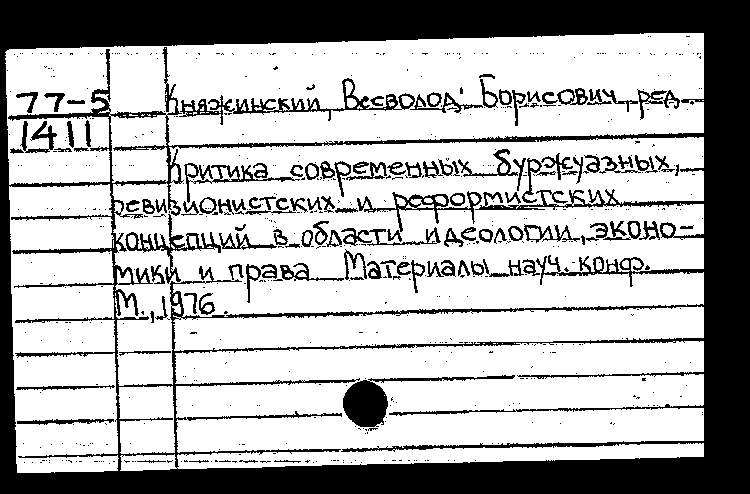 77-5 Княжинский, Всеволод Борисович, ред.
1411
Критика современных буржуазных,
ревизионистских и реформистских
концепций в области идеологии, эконо-
мики и права Материалы науч. конф.
М., 1976.